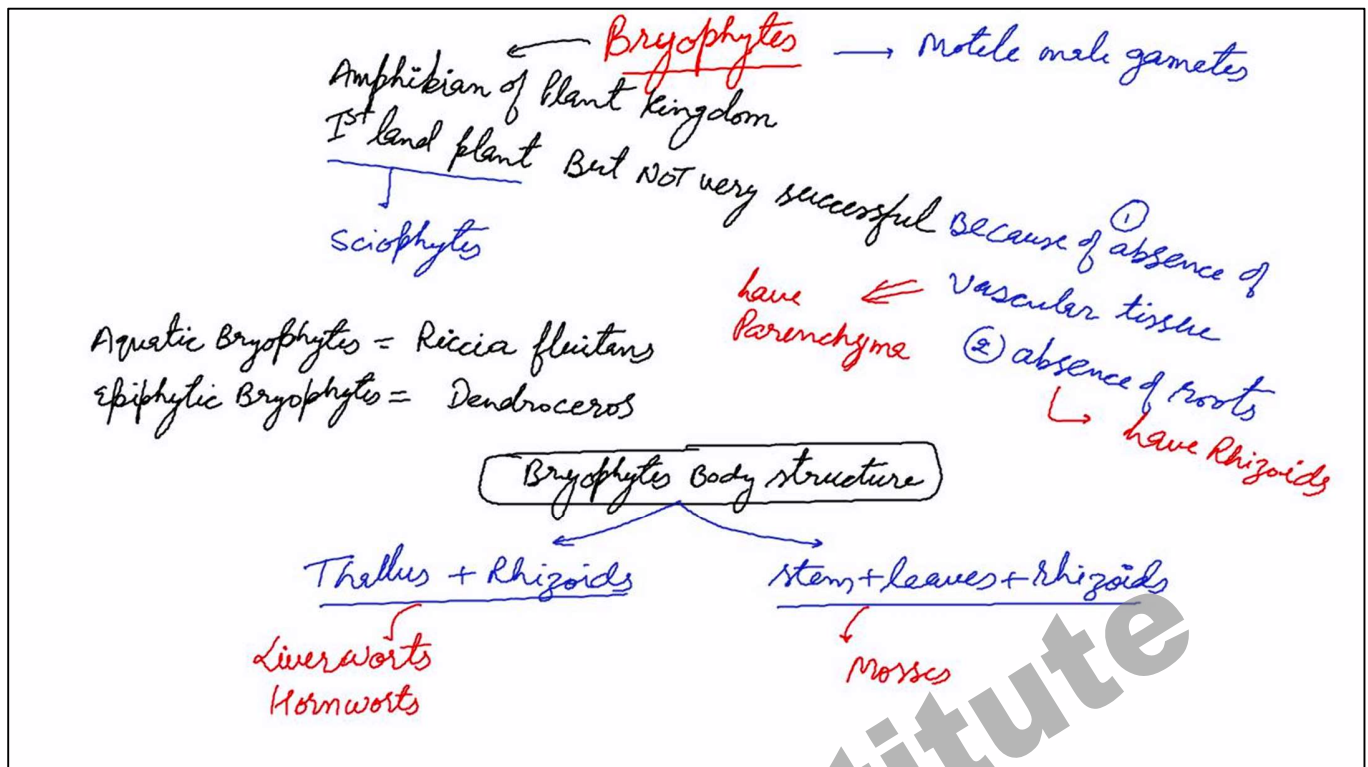 Bryophytes → Motile male gametes
Amphibian of Plant kingdom
Ist land plant But NOT very successful Because of ① absence of
vascular tissue
have
Parenchyma
② absence of roots
have Rhizoids
Sciophytes
Aquatic Bryophytes = Riccia fluitans
Epiphytic Bryophytes = Dendroceros
Bryophytes Body structure
Thallus + Rhizoids
stem + leaves + rhizoids
Liverworts
Hornworts
Mosses